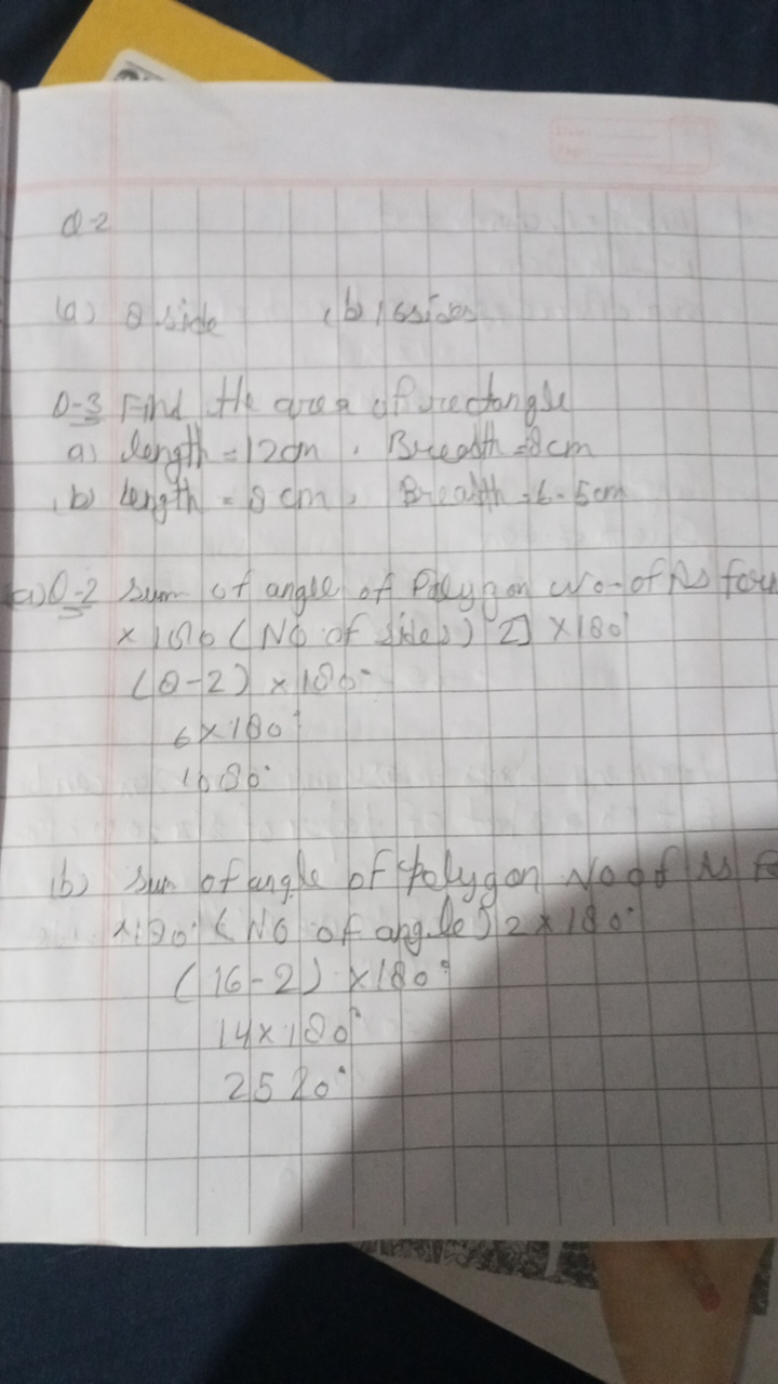 Q-2
(a) 8 side (b) 16 sides
Q-3 Find the area of rectangle
a) length = 12cm, Breadth = 8cm
(b) length = 8 cm, Breadth = 6.5cm
(a) Q-2 Sum of angle of Polygon No-of Δs for
× 180 (No of sides) 2] × 180°
(8-2) × 180°
6×180°
1080°
(b) Sum of angle of polygon No of Δs F
×180° (No of angle) 2 × 180°
(16-2) ×180°
14×180°
2520°